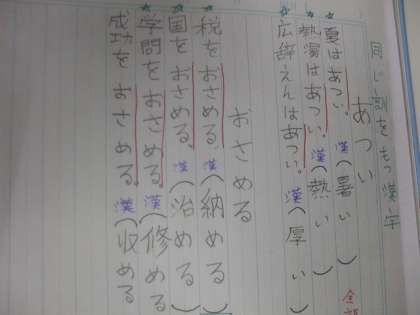 同じ訓をもつ漢字
あつい
夏はあつい。漢(暑い)
熱湯はあつい。漢(熱い)
広辞えんはあつい。漢(厚い)
おさめる
税をおさめる。漢(納める)
国をおさめる。漢(治める)
学問をおさめる。漢(修める)
成功をおさめる。漢(収める